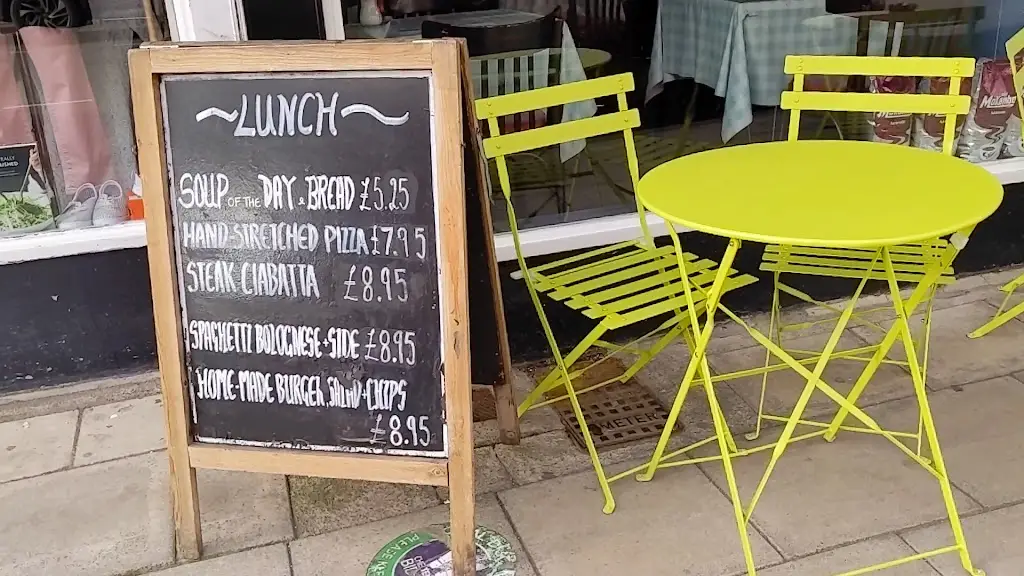 ~LUNCH~
SOUP OF THE DAY & BREAD £5.25
HAND STRETCHED PIZZA £7.95
STEAK CIABATTA £8.95
SPAGHETTI BOLOGNESE + SIDE £8.95
HOME-MADE BURGER SALAD + CHIPS
£8.95
METER
PLEASE